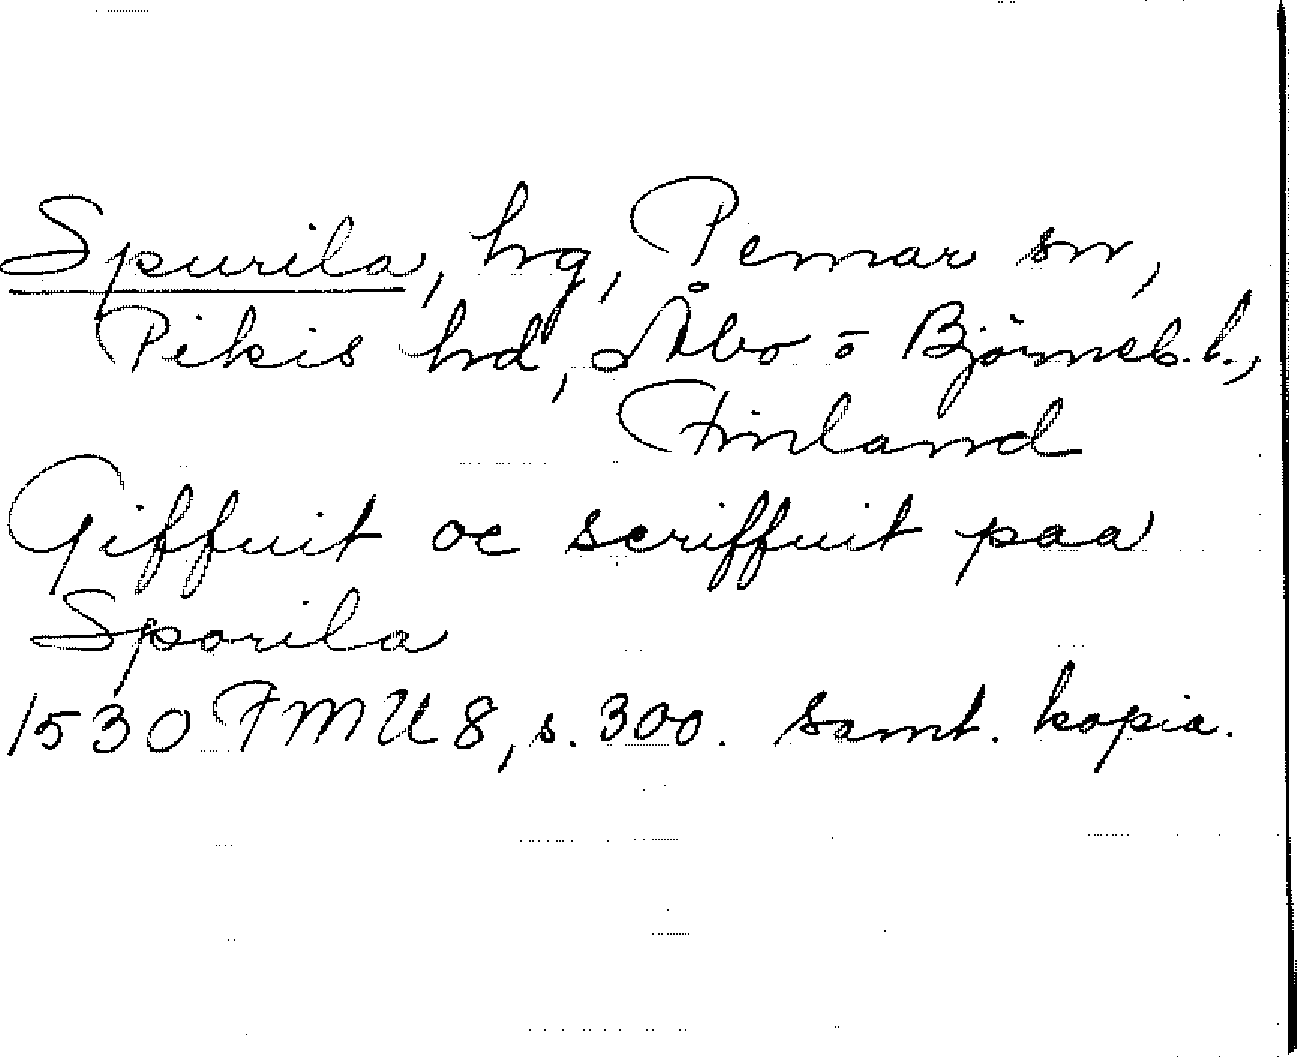 Spurila, hg, Pemar sn,
Pikis hd, Åbo = Björneb. l.,
Finland
Giffuit oc scriffuit paa
Sporila
1530 FMU 8, s. 300. samt. kopia.